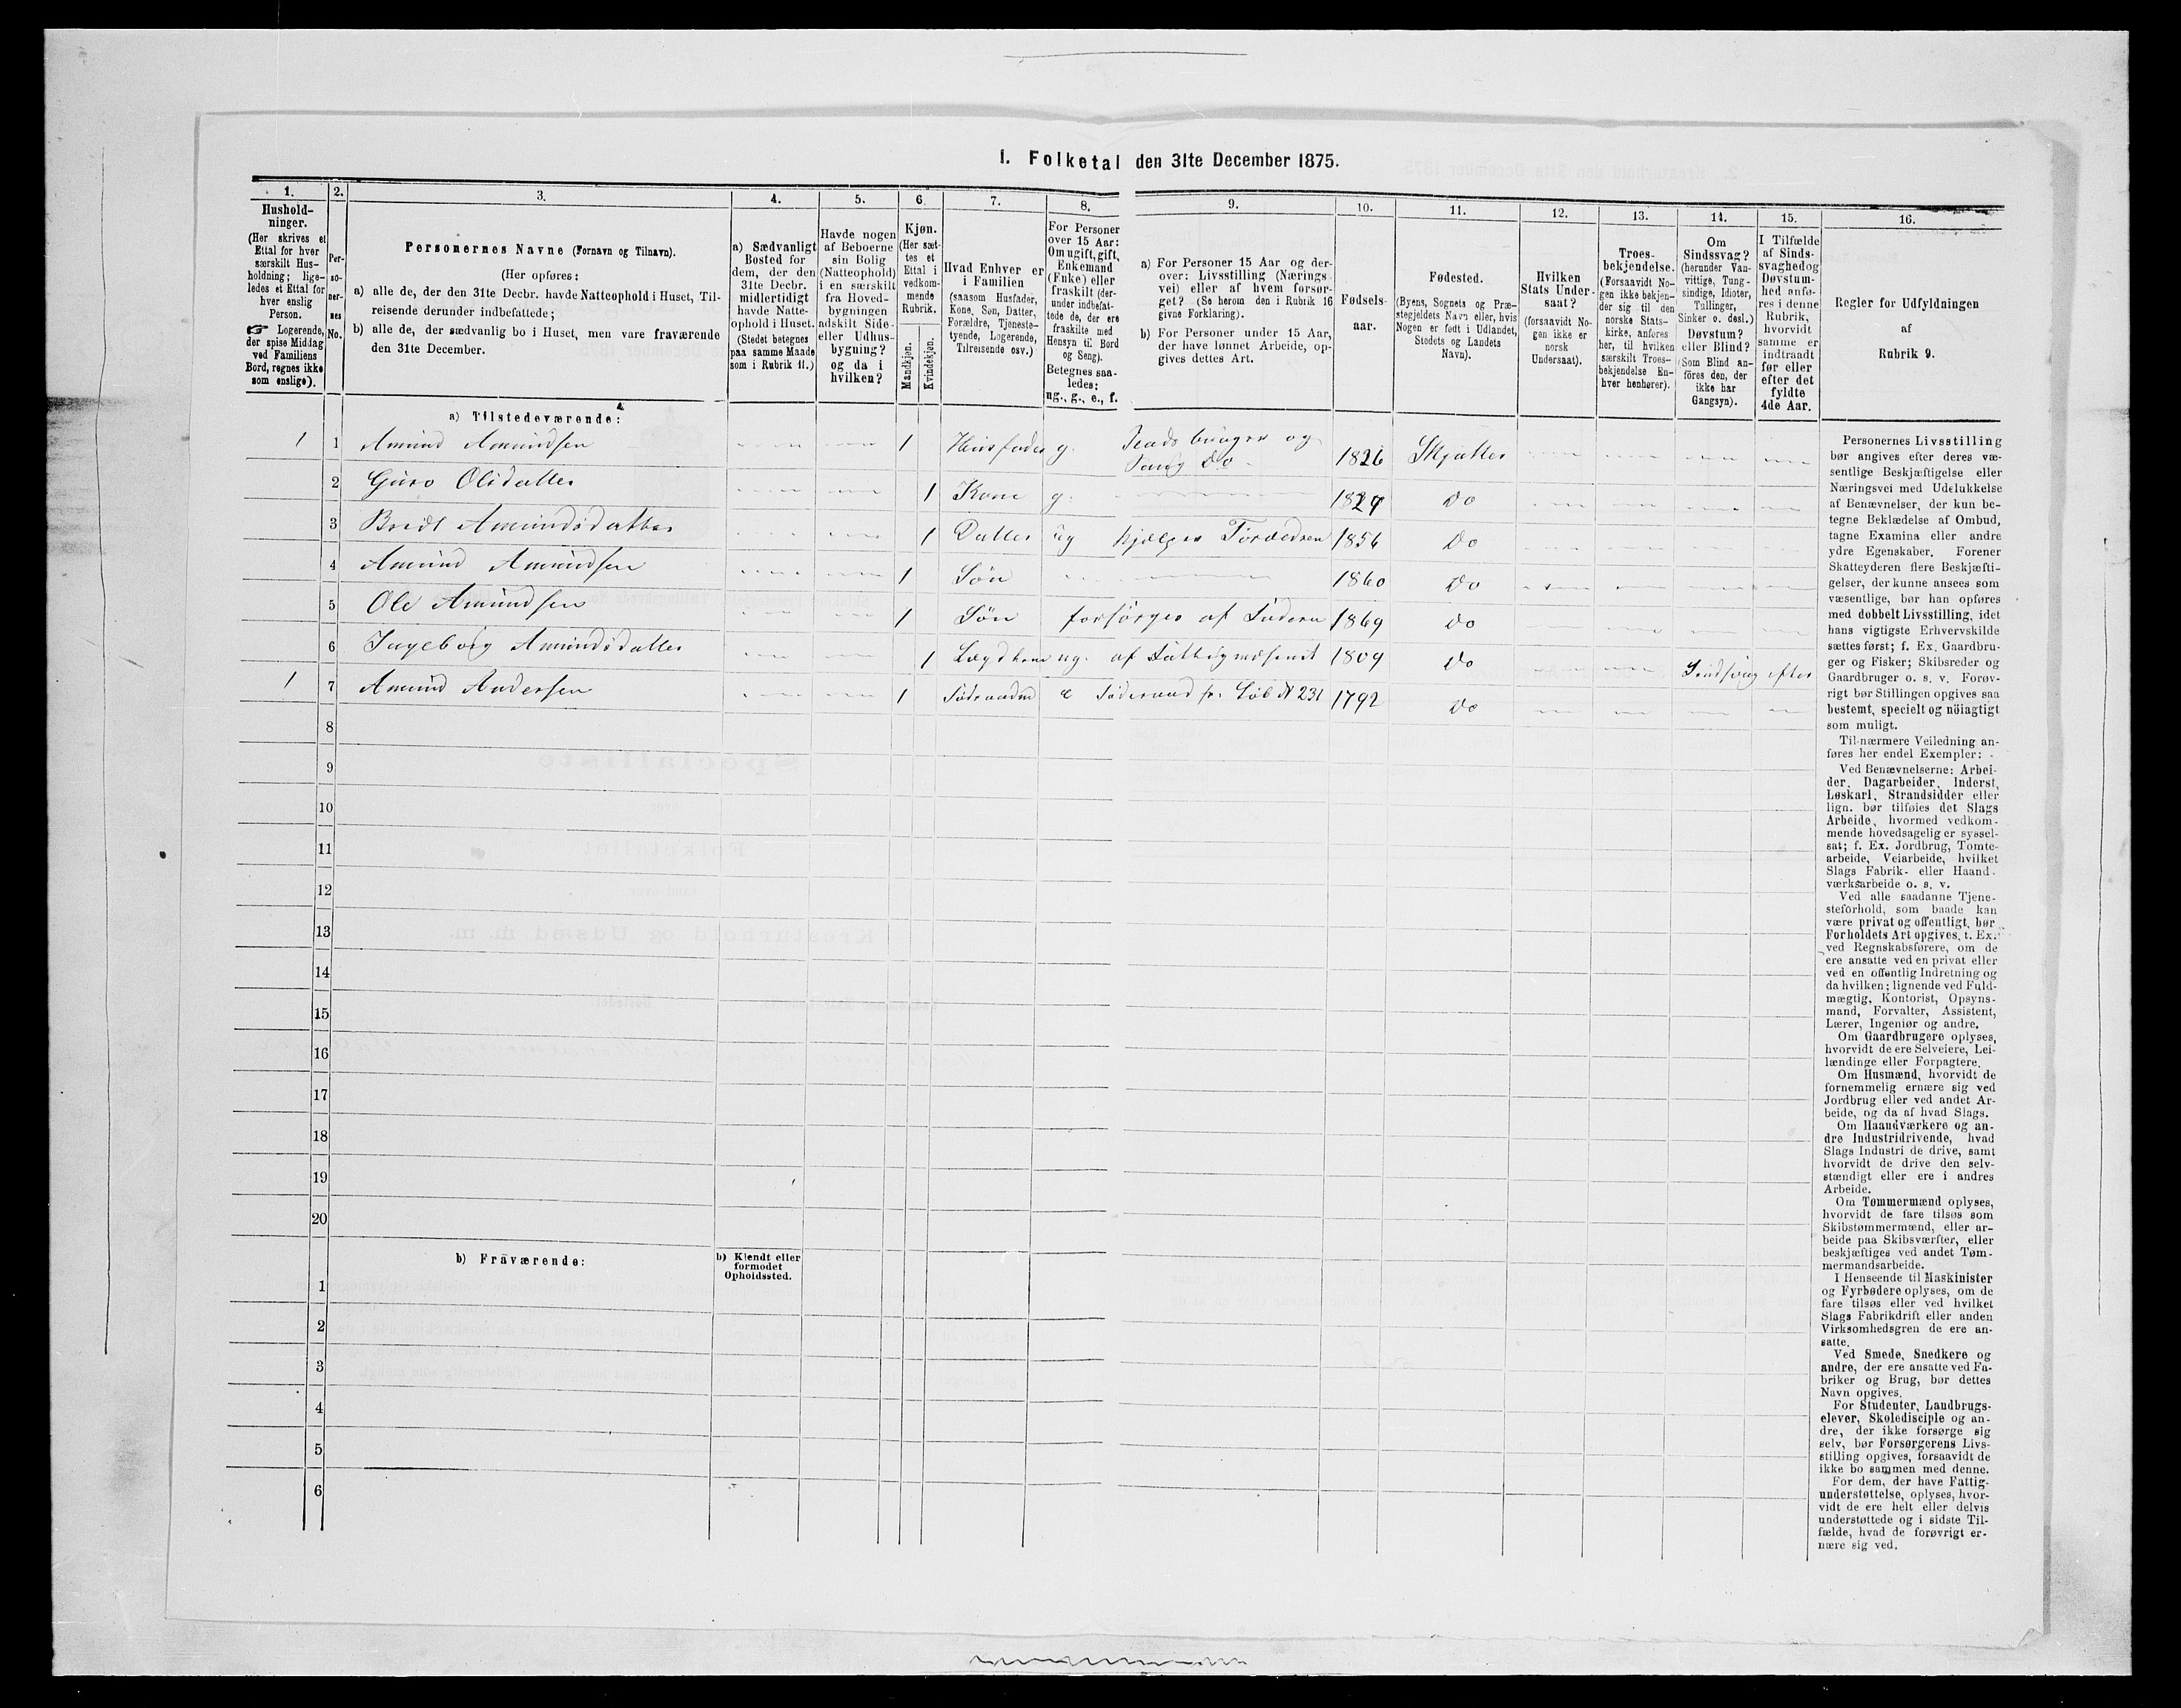 1. Folketal den 31te December 1875.
1. 2. 3. 4. 5. 6. 7. 8. 9. 10. 11. 12. 13. 14. 15. 16.
Hushold-
ninger.
(Her skrives et
Ettal for hver
særskilt Hus-
holdning; lige-
ledes et Ettal for
hver enslig
Person.
☞ Logerende,
der spise Middag
ved Familiens
Bord, regnes ikke
som enslige).
Per-
so-
ner-
nes
No.
Personernes Navne (Fornavn og Tilnavn).
(Her opføres:
a) alle de, der den 31te Decbr. havde Natteophold i Huset, Til-
reisende derunder indbefattede;
b) alle de, der sædvanlig bo i Huset, men vare fraværende
den 31te December.
a) Sædvanligt
Bosted for
dem, der den
31te Decbr.
midlertidigt
havde Natte-
ophold i Huset.
(Stedet betegnes
paa samme Maade
som i Rubrik 11.)
Havde nogen
af Beboerne
sin Bolig
(Natteophold)
i en særskilt
fra Hoved-
bygningen
adskilt Side-
eller Udhus-
bygning?
og da i
hvilken?
Kjøn.
(Her sæt-
tes et
Ettal i
vedkom-
mende
Rubrik.
Mandkjøn.
Kvindekjøn.
Hvad Enhver er
i Familien
(saasom Husfader,
Kone, Søn, Datter,
Forældre, Tjeneste-
tyende, Logerende,
Tilreisende osv.)
For Personer
over 15 Aar:
Om ugift, gift,
Enkemand
(Enke) eller
fraskilt (der-
under indbefat-
tede de, der ere
fraskilte med
Hensyn til Bord
og Seng).
Betegnes saa-
ledes:
ug., g., e., f.
a) For Personer 15 Aar og der-
over: Livsstilling (Nærings-
vei) eller af hvem forsør-
get? (Se herom den i Rubrik 16
givne Forklaring).
b) For Personer under 15 Aar,
der have lønnet Arbeide, op-
gives dettes Art.
Fødsels-
aar.
Fødested.
(Byens, Sognets og Præ-
stegjeldets Navn eller, hvis
Nogen er født i Udlandet,
Stedets og Landets
Navn).
Hvilken
Stats Under-
saat?
(forsaavidt No-
gen ikke er
norsk
Undersaat).
Troes-
bekjendelse.
(Forsaavidt No-
gen ikke bekjen-
der sig til den
norske Stats-
kirke, anføres
her, til hvilken
særskilt Troes-
bekjendelse En-
hver henhører).
Om
Sindssvag?
(herunder Van-
vittige, Tung-
sindige, Idioter,
Tullinger,
Sinker o. desl.)
Døvstum?
eller Blind?
(Som Blind an-
føres den, der
ikke har
Gangsyn).
I Tilfælde
af Sinds-
svaghedog
Døvstum-
hed anfø-
res i denne
Rubrik,
hvorvidt
samme er
indtraadt
før eller
efter det
fyldte
4de Aar.
Regler for Udfyldningen
af
Rubrik 9.
a) Tilstedeværende:
1 1 Amund Amundsen 1 Huusfader g. og
Do 1826 Skjatter
2 Guro Olsdatter 1 Kone g. 1829 Do
3 Bredt Amundsdatter 1 Datter ug hjelper Forældren 1856 Do
4 Amund Amundsen 1 Søn 1860 Do
5 Ole Amundsen 1 Søn forsørges af Faderen 1869 Do
6 Ingeborg Amundsdatter 1 Lægdkone ug. af Fattigvæsenet 1809 Do Sindsvag efter
1 7 Amund Andersen 1 Føderaadm e Føderaad fr. Løb N 231 1792 Do
8
9
10
11
12
13
14
15
16
17
18
19
20
b) Fraværende:
b) Kjendt eller
formodet
Opholdssted.
1
2
3
4
5
6
Personernes Livsstilling
bør angives efter deres væ-
sentlige Beskjæftigelse eller
Næringsvei med Udelukkelse
af Benævnelser, der kun be-
tegne Beklædelse af Ombud,
tagne Examina eller andre
ydre Egenskaber. Forener
Skatteyderen flere Beskjæfti-
gelser, der kunne ansees som
væsentlige, bør han opføres
med dobbelt Livsstilling, idet
hans vigtigste Erhvervskilde
sættes først; f. Ex. Gaardbru-
ger og Fisker; Skibsreder og
Gaardbruger o. s. v. Forøv-
rigt bør Stillingen opgives saa
bestemt, specielt og nöiagtigt
som muligt.
Til nærmere Veiledning an-
føres her endel Exempler:
Ved Benævnelserne: Arbei-
der, Dagarbeider, Inderst,
Løskarl, Strandsidder eller
lign. bør tilføies det Slags
Arbeide, hvormed vedkom-
mende hovedsagelig er syssel-
sat; f. Ex. Jordbrug, Tomte-
arbeide, Veiarbeide, hvilket
Slags Fabrik- eller Haand-
værksarbeide o. s. v.
Ved alle saadanne Tjene-
steforhold, som baade kan
være privat og offentligt, bør
Forholdets Art opgives, t. Ex.
ved Regnskabsførere, om de
ere ansatte ved en privat eller
ved en offentlig Indretning og
da hvilken; lignende ved Fuld-
mægtig, Kontorist, Opsyns-
mand, Forvalter, Assistent,
Lærer, Ingeniør og andre.
Om Gaardbrugere oplyses,
hvorvidt de ere Selveiere, Lei-
lændinge eller Forpagtere.
Om Husmænd, hvorvidt de
fornemmelig ernære sig ved
Jordbrug eller ved andet Ar-
beide, og da af hvad Slags.
Om Haandværkere og an-
dre Industridrivende, hvad
Slags Industri de drive, samt
hvorvidt de drive den selv-
stændigt eller ere i andres
Arbeide.
Om Tømmermænd oplyses,
hvorvidt de fare tilsøs som
Skibstømmermænd, eller ar-
beide paa Skibsværfter, eller
beskjæftiges ved andet Tøm-
mermandsarbeide.
I Henseende til Maskinister
og Fyrbødere oplyses, om de
fare tilsøs eller ved hvilket
Slags Fabrikdrift eller anden
Virksomhedsgren de ere an-
satte.
Ved Smede, Snedkere og
andre, der ere ansatte ved Fa-
briker og Brug, bør dettes
Navn opgives.
For Studenter, Landbrugs-
elever, Skoledisciple og an-
dre, der ikke forsørge sig
selv, bør Forsørgerens Livs-
stilling opgives, forsaavidt de
ikke bo sammen med denne.
For dem, der have Fattig-
understøttelse, oplyses, hvor-
vidt de ere helt eller delvis
understøttede og i sidste Til-
fælde, hvad de forøvrigt er-
nære sig ved.